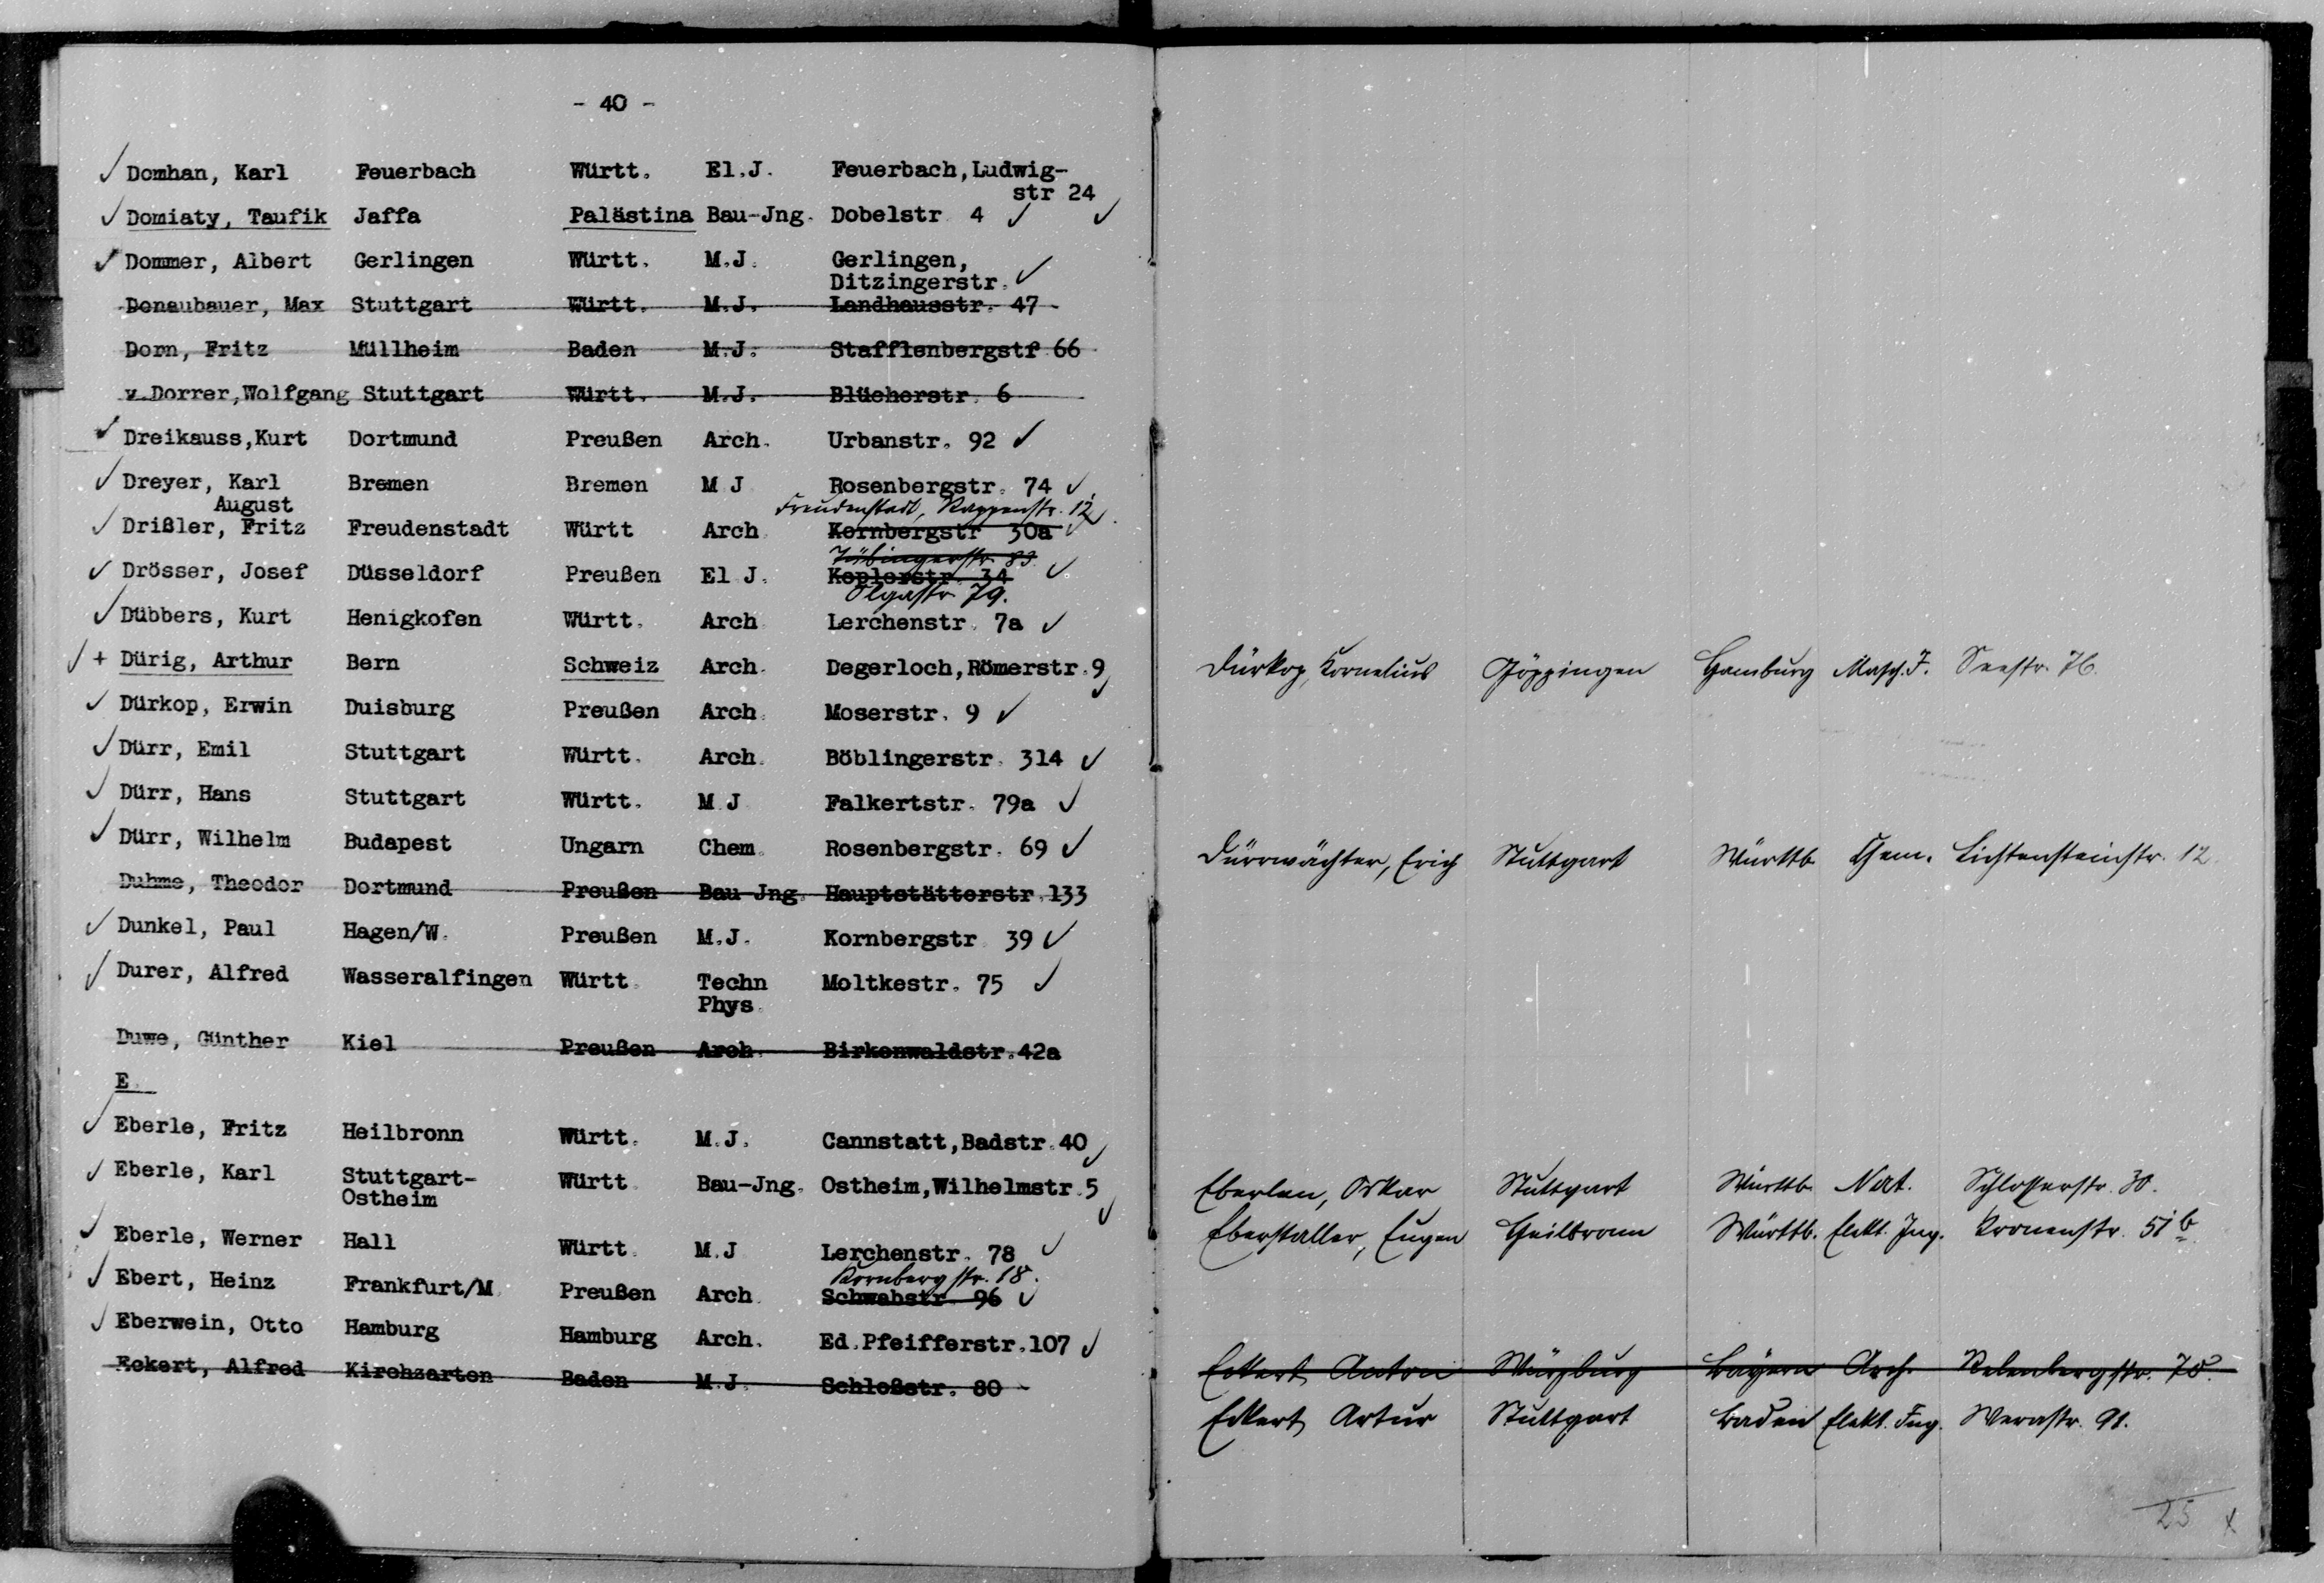 - 40 -
Domhan, Karl Feuerbach Württ. El.J. Feuerbach, Ludwig-
str 24
Domiaty, Taufik Jaffa Palästina Bau-Jng. Dobelstr 4
Dommer, Albert Gerlingen Württ. M.J. Gerlingen,
Ditzingerstr.
Donaubauer, Max Stuttgart Württ. M.J. Landhausstr. 47
Dorn, Fritz Müllheim Baden M.J. Stafflenbergstr 66
v.Dorrer,Wolfgang Stuttgart Württ. M.J. Blücherstr. 6
Dreikauss,Kurt Dortmund Preußen Arch. Urbanstr. 92
Dreyer, Karl Bremen Bremen M J Rosenbergstr. 74
August Freudenstadt, Rappenstr. 12
Drißler, Fritz Freudenstadt Württ Arch Kornbergstr 30a
Tübingerstr. 83
Drösser, Josef Düsseldorf Preußen El J. Keplerstr. 34
Olgastr 79.
Dübbers, Kurt Henigkofen Württ. Arch Lerchenstr. 7a
+ Dürig, Arthur Bern Schweiz Arch. Degerloch,Römerstr.9
Dürkop, Erwin Duisburg Preußen Arch. Moserstr. 9
Dürr, Emil Stuttgart Württ. Arch. Böblingerstr. 314
Dürr, Hans Stuttgart Württ. M J Falkertstr. 79a
Dürr, Wilhelm Budapest Ungarn Chem. Rosenbergstr. 69
Duhme, Theodor Dortmund Preußen Bau Jng. Hauptstätterstr.133
Dunkel, Paul Hagen/W. Preußen M.J. Kornbergstr 39
Durer, Alfred Wasseralfingen Württ. Techn Moltkestr. 75
Phys.
Duwe, Günther Kiel Preußen Arch. Birkenwaldstr.42a
E.
Eberle, Fritz Heilbronn Württ. M.J. Cannstatt,Badstr.40
Eberle, Karl Stuttgart- Württ Bau-Jng. Ostheim,Wilhelmstr.5
Ostheim
Eberle, Werner Hall Württ. M.J Lerchenstr. 78
Kornbergstr. 18.
Ebert, Heinz Frankfurt/M. Preußen Arch. Schwabstr. 96
Eberwein, Otto Hamburg Hamburg Arch. Ed.Pfeifferstr.107
Eckert, Alfred Kirchzarten Baden M.J. Schloßstr. 80
Dürkop, Kornelius Göppingen Hamburg Masch.J. Seestr. 76.
Dürrwächter, Erich Stuttgart Württb. Chem. Lichtensteinstr. 12
Eberlen, Oskar Stuttgart Württb. Nat. Schlosserstr. 30.
Eberstaller, Eugen Heilbronn Württb. Elekt. Jng. Kronenstr. 51 b
Eckert, Anton Würzburg Bayern Arch. Relenbergstr. 70.
Eckert, Artur Stuttgart Baden Elekt. Jng. Werastr. 91.
25 x